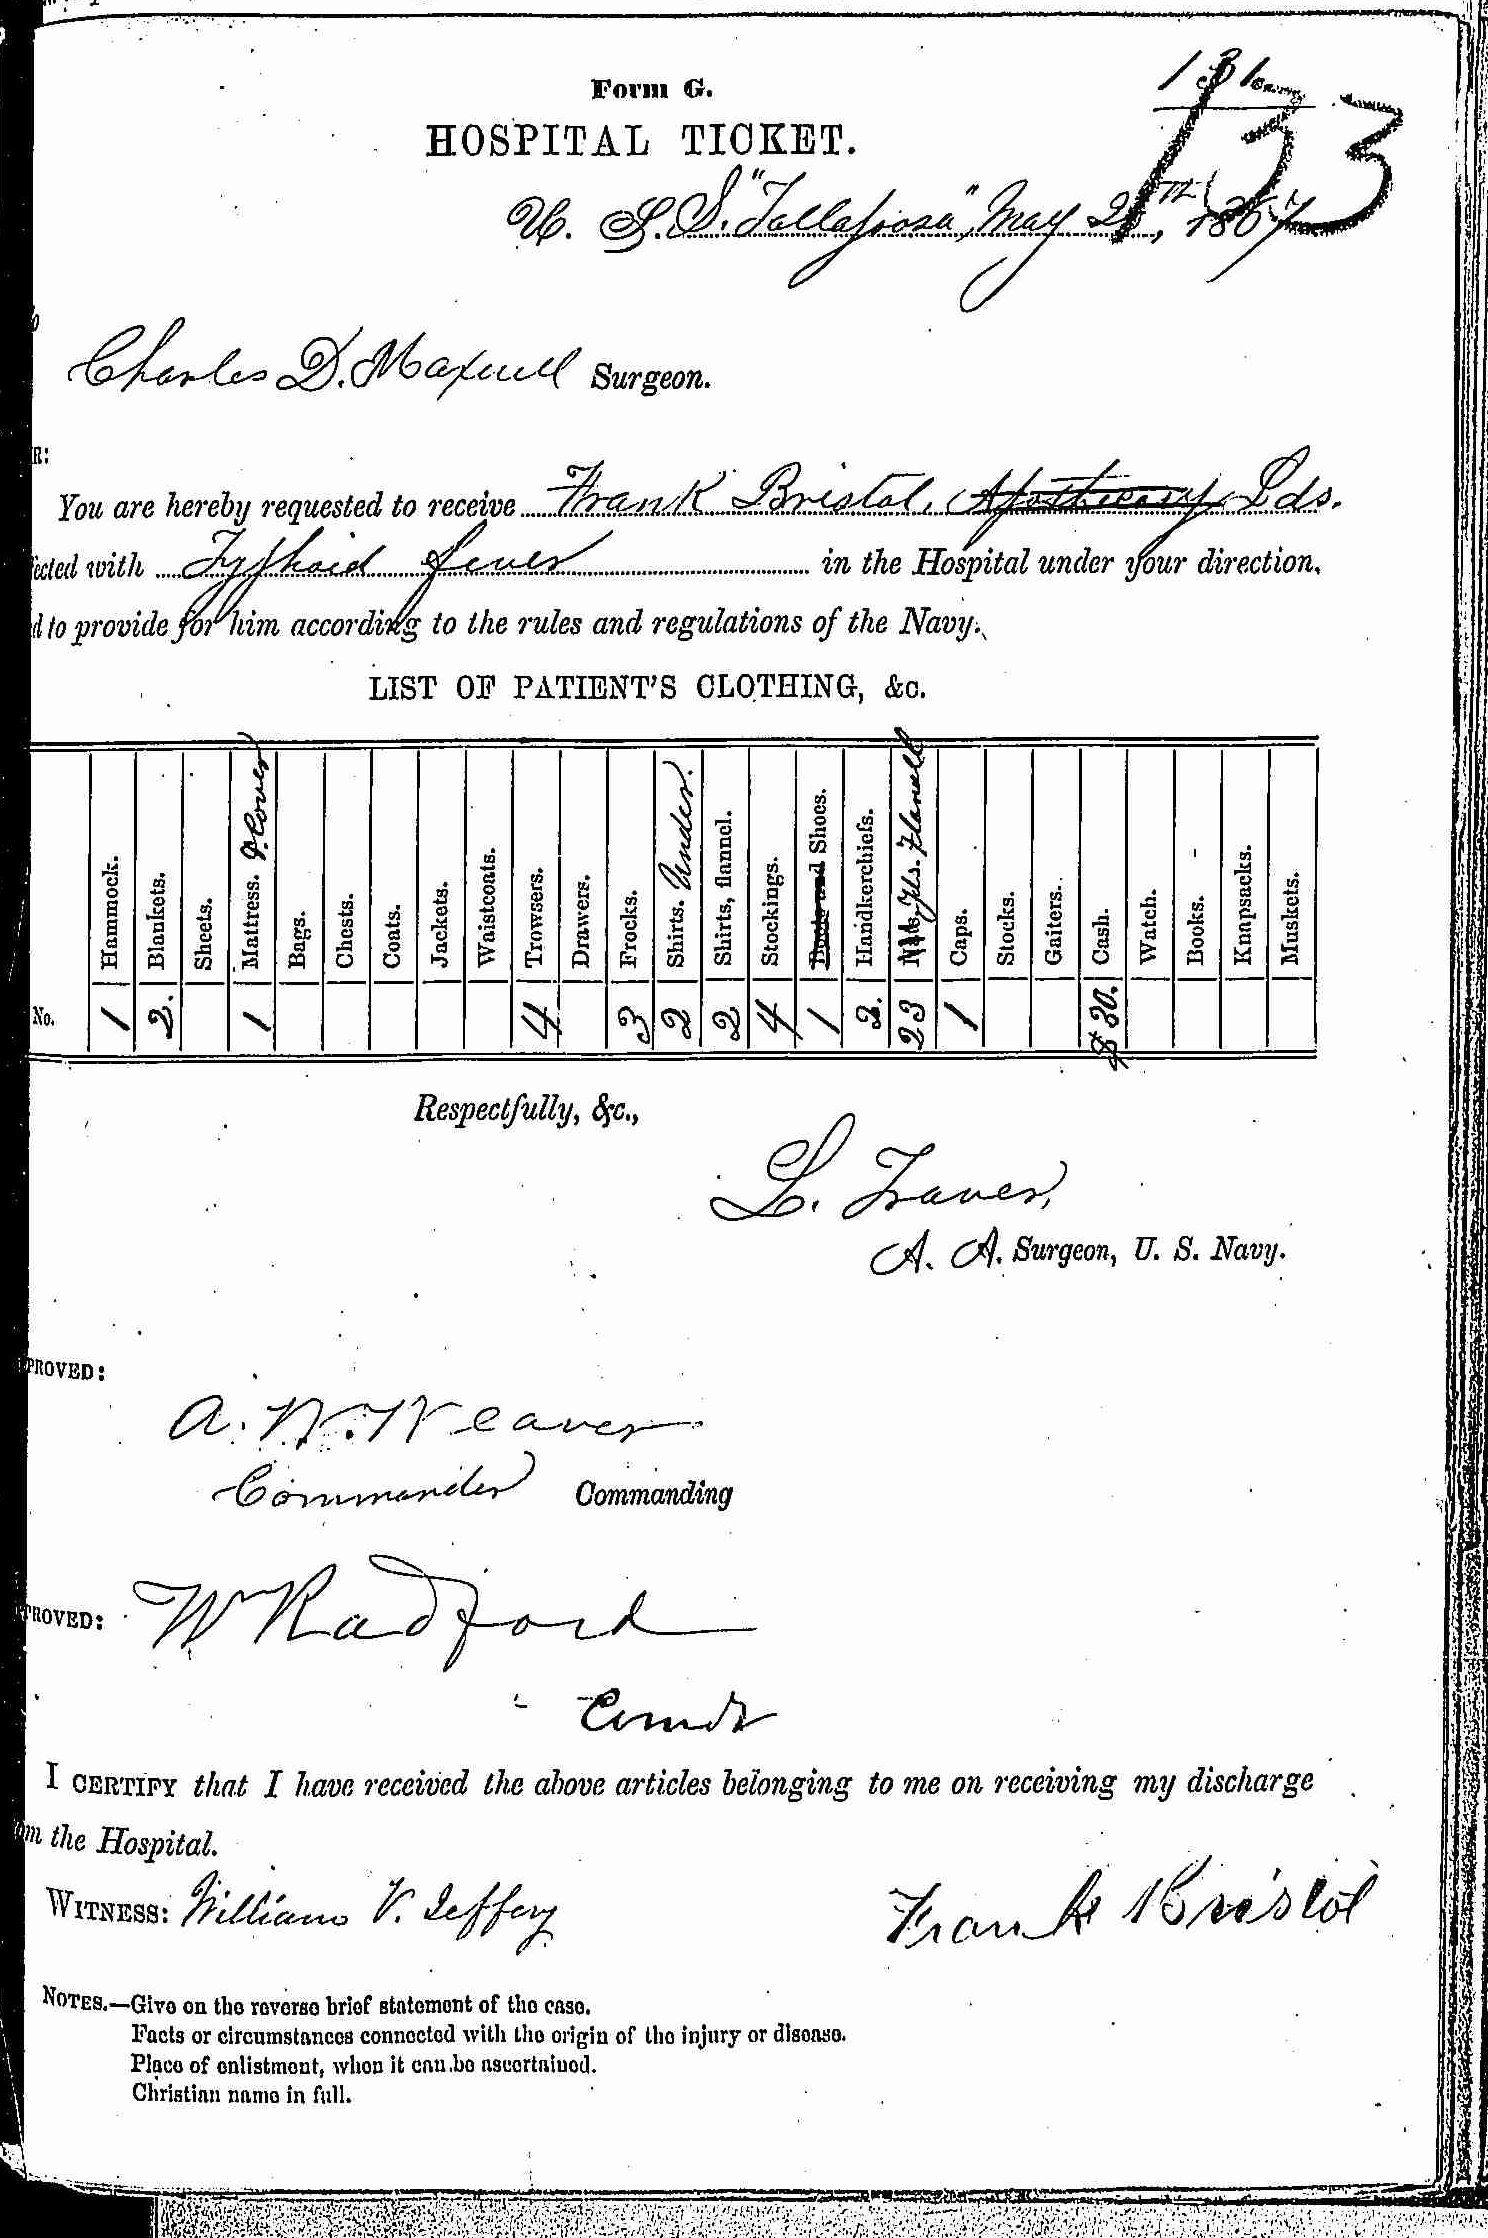 Form G.
131
133
HOSPITAL TICKET.
U. S. S. "Tallapoosa", May 2 th, 1867
Charles D. Maxwell Surgeon.
R:
You are hereby requested to receive Frank Bristol, Apothecary, Lds.
ected with Typhoid fever in the Hospital under your direction,
d to provide for him according to the rules and regulations of the Navy.
LIST OF PATIENT'S CLOTHING, &c.
Hammock. Blankets. Sheets. Mattress. & Cover Bags. Chests. Coats. Jackets. Waistcoats. Trowsers. Drawers. Frocks. Shirts. Under. Shirts, flannel. Stockings. Boots and Shoes. Handkerchiefs. Yds. Flannel Caps. Stocks. Gaiters. Cash. Watch. Books. Knapsacks. Muskets.
No. 1 2. 1 4 3 2 2 4 1 2. 23 1 $30.
Respectfully, &c.,
L. Traver,
A. A. Surgeon, U. S. Navy.
PROVED:
A. W. Weaver
Commander Commanding
PROVED: W Radford
Comdt
I CERTIFY that I have received the above articles belonging to me on receiving my discharge
om the Hospital.
WITNESS: William V. Jeffery Frank Bristol
NOTES.—Give on the reverse brief statement of the case.
Facts or circumstances connected with the origin of the injury or disease.
Place of enlistment, when it can be ascertained.
Christian name in full.